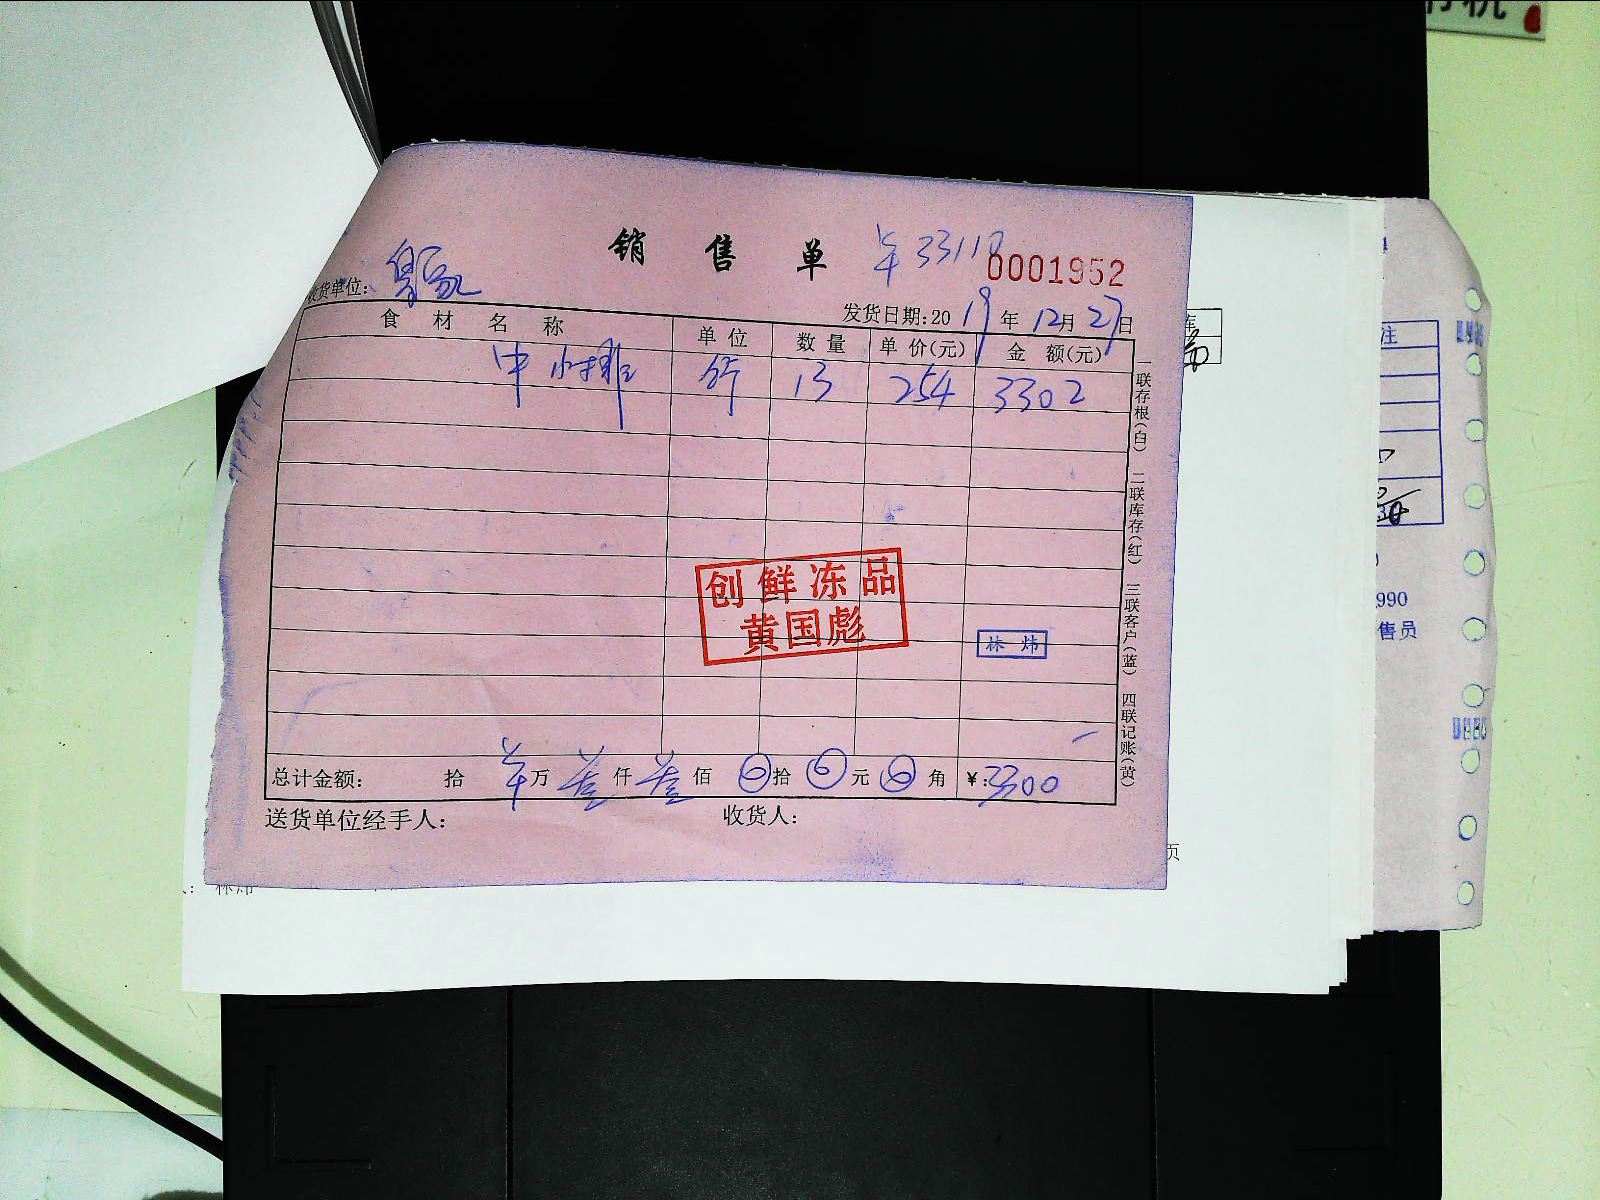 销售单
33118
0001952
收货单位:
发货日期:2019年12月27日
食材名称 单位 数量 单价(元) 金额(元)
中小排 件 13 254 3302
一联存根(白) 二联库存(红) 三联客户(蓝) 四联记账(黄)
创鲜冻品
黄国彪
林炜
总计金额: 拾 万叁仟叁佰 拾 元 角 ¥:3300
送货单位经手人: 收货人:
注
990
售员
页
林炜